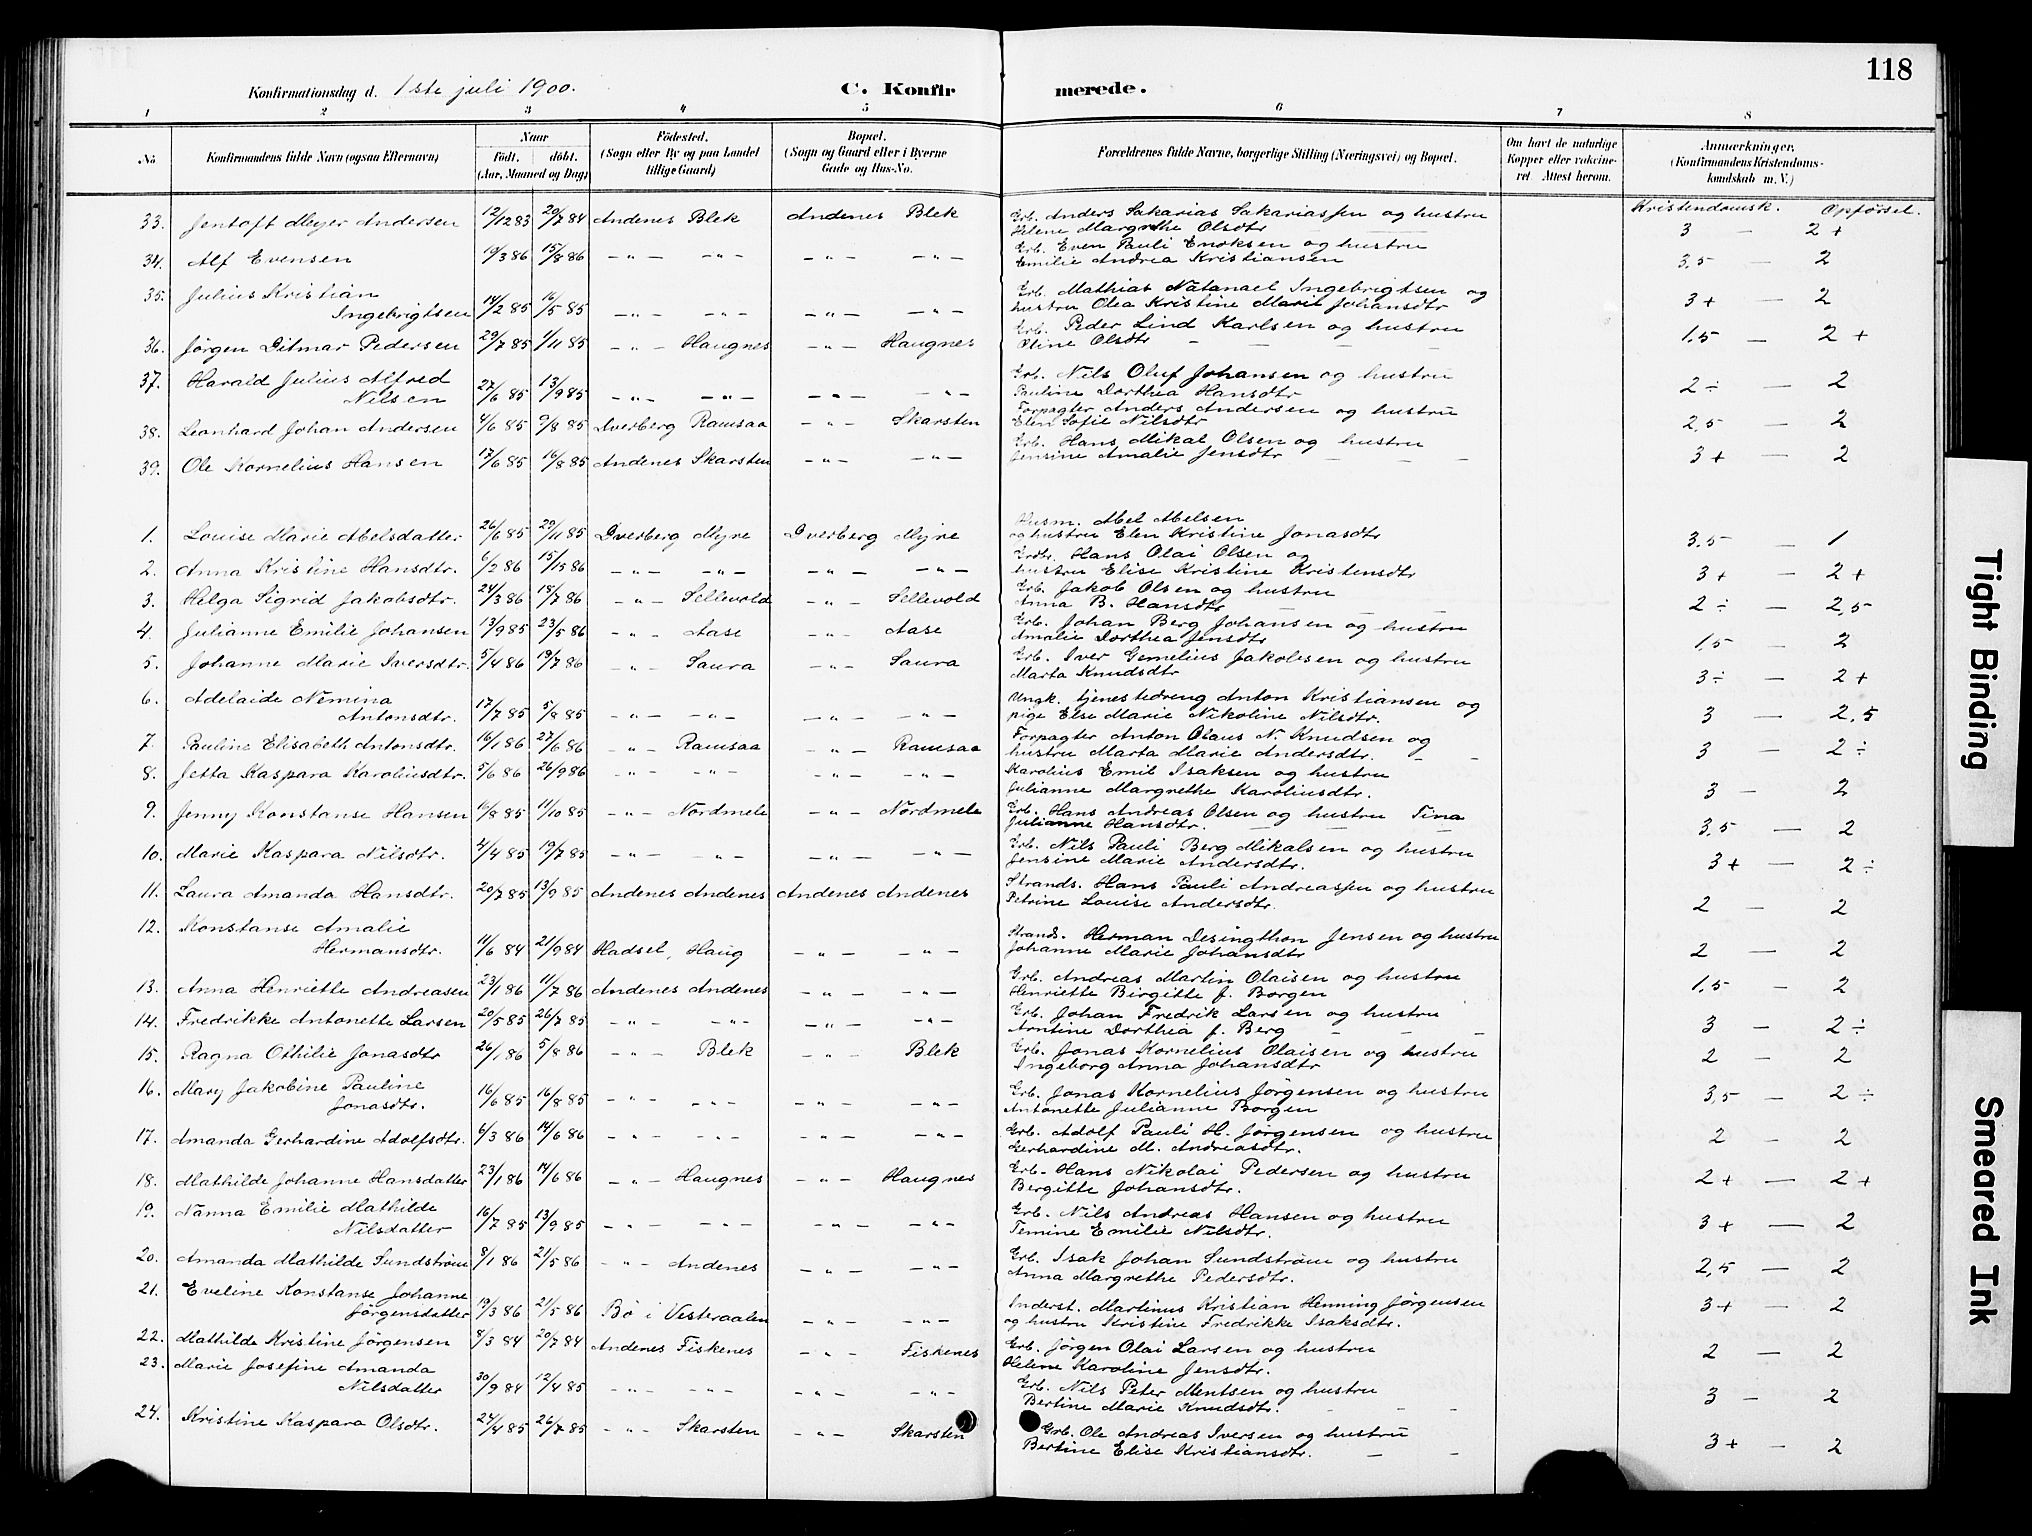 118
Konfirmationsdag d. 1ste juli 1900. C. Konfirmerede.
1 2 3 4 5 6 7 8
No Konfirmandens fulde Navn (ogsaa Efternavn) Naar født. døbt. (Aar, Maaned og Dag) Fødested. (Sogn eller By og paa Landet tillige Gaard) Bopæl. (Sogn og Gaard eller i Byerne Gade og Hus-No. Forældrenes fulde Navne, borgerlige Stilling (Næringsvei) og Bopæl. Om havt de naturlige Kopper eller vakcineret. Attest herom. Anmærkninger. (Konfirmandens Kristendomskundskab m. V.)
Kristendomsk. Opførsel.
33. Jentoft Meyer Andersen 12/12 83 20/7 84 Andenes Blek Andenes Blek Grb. Anders Sakarias Sakariassen og hustru Helene Margrethe Olsdtr 3 — 2+
34. Alf Evensen 19/3 86 15/8 86 -"- -"- -"- -"- Grb. Even Pauli Enoksen og hustru Emilie Andrea Kristiansen 3,5 — 2
35. Julius Kristian Ingebrigtsen 14/2 85 16/5 85 -"- -"- -"- -"- Grb. Mathias Natanael Ingebrigtsen og hustru Olea Kristine Marie Johansdtr 3+ — 2
36. Jørgen Ditmar Pedersen 29/7 85 1/11 85 -"- Haugnes -"- Haugnes Grb. Peder Lind Karlsen og hustru Oline Olsdtr 1,5 — 2+
37. Harald Julius Alfred Nilsen 27/6 85 13/9 85 -"- -"- -"- -"- Grb. Nils Oluf Johansen og hustru Pauline Dorthea Hansdtr 2÷ — 2
38. Leonhard Johan Andersen 4/6 85 9/8 85 Dverberg Ramsaa -"- Skarsten Forpagter Anders Andersen og hustru Elen Sofie Nilsdtr 2,5 — 2
39. Ole Kornelius Hansen 17/6 85 16/8 85 Andenes Skarsten -"- -"- Grb. Hans Mikal Olsen og hustru Jensine Amalie Jensdtr 3+ — 2
1. Louise Marie Abelsdatter 26/6 85 29/11 85 Dverberg Myre Dverberg Myre Husm. Abel Abelsen og hustru Elen Kristine Jonasdtr 3,5 — 1
2. Anna Kristine Hansdtr. 6/2 86 15/15 86 -"- -"- -"- -"- Grdbr. Hans Olai Olsen og hustru Elise Kristine Kristensdtr 3+ — 2+
3. Helga Sigrid Jakobsdtr. 24/3 86 18/7 86 -"- Sellevold -"- Sellevold Grb. Jakob Olsen og hustru Anna B. Hansdtr 2÷ — 2,5
4. Julianne Emilie Johansen 13/9 85 23/5 86 -"- Aase -"- Aase Grb. Johan Berg Johansen og hustru Amalie Dorthea Jensdtr 1,5 — 2
5. Johanne Marie Iversdtr. 5/4 86 19/7 86 -"- Saura -"- Saura Grb. Iver Gemelius Jakobsen og hustru Marta Knudsdtr 3÷ — 2+
6. Adelaide Nemina Antonsdtr. 17/7 85 5/8 85 -"- -"- -"- -"- Ungk. tjenestedreng Anton Kristiansen og pige Else Marie Nikoline Nilsdtr. 3 — 2,5
7. Pauline Elisabeth Antonsdtr. 16/1 86 27/6 86 -"- Ramsaa -"- Ramsaa Forpagter Anton Olaus N. Knudsen og hustru Marta Marie Andersdtr. 3 — 2÷
8. Jetta Kaspara Karoliusdtr. 5/6 86 26/9 86 -"- -"- -"- -"- Karolius Emil Isaksen og hustru Julianne Margrethe Karoliusdtr. 3 — 2
9. Jenny Konstanse Hansen 16/8 85 11/10 85 -"- Nordmele -"- Nordmele Grb. Hans Andreas Olsen og hustru Tina Julianne Hansdtr. 3,5 — 2
10. Marie Kaspara Nilsdtr. 4/4 85 19/7 85 -"- -"- -"- -"- Grb. Nils Pauli Berg Mikalsen og hustru Jensine Marie Andersdtr. 3+ — 2÷
11. Laura Amanda Hansdtr. 20/7 85 13/9 85 Andenes Andenes Andenes Andenes Strands. Hans Pauli Andreassen og hustru Petrine Louise Andersdtr. 2 — 2
12. Konstanse Amalie Hermansdtr. 11/6 84 21/9 84 Hadsel, Haug -"- -"- Strands. Herman Desingthon Jensen og hustru Johanne Marie Johansdtr 2 — 2
13. Anna Henriette Andreasen 23/1 86 11/7 86 Andenes Andenes -"- -"- Grb. Andreas Martin Olaisen og hustru Henriette Birgitte f. Borgen 1,5 — 2
14. Fredrikke Antonette Larsen 20/5 85 26/7 85 -"- -"- -"- -"- Grb. Johan Fredrik Larsen og hustru Arntine Dorthea f. Berg 3 — 2÷
15. Ragna Othilie Jonasdtr 26/1 86 5/8 86 -"- Blek -"- Blek Grb. Jonas Kornelius Olaisen og hustru Ingeborg Anna Johansdtr 2 — 2
16. Mary Jakobine Pauline Jonasdtr. 16/6 85 16/8 85 -"- -"- -"- -"- Grb. Jonas Kornelius Jørgensen og hustru Antonette Julianne Borgen 3,5 — 2÷
17. Amanda Gerhardine Adolfsdtr. 6/3 86 14/6 86 -"- -"- -"- -"- Grb. Adolf Pauli H. Jørgensen og hustru Gerhardine M. Andreasdtr. 2 — 2
18. Mathilde Johanne Hansdatter 23/1 86 14/6 86 -"- Haugnes -"- Haugnes Grb. Hans Nikolai Pedersen og hustru Bergitte Johansdtr. 2+ — 2+
19. Nanna Emilie Mathilde Nilsdatter 16/7 85 13/9 85 -"- -"- -"- -"- Grb. Nils Andreas Hansen og hustru Temine Emilie Nilsdtr. 3+ — 2
20. Amanda Mathilde Sundstrøm 8/1 86 21/5 86 -"- Andenes -"- -"- Grb. Isak Johan Sundstrøm og hustru Anna Margrethe Pedersdtr. 2,5 — 2
21. Eveline Konstanse Johanne Jørgensdatter 19/3 86 21/5 86 Bø i Vesteraalen -"- -"- Inderst. Martinus Kristian Henning Jørgensen og hustru Kristine Fredrikke Isaksdtr. 3+ — 2
22. Mathilde Kristine Jørgensen 8/3 84 20/7 84 Andenes Fiskenes -"- Fiskenes Grb. Jørgen Olai Larsen og hustru Helene Karoline Jensdtr. 2 — 2
23. Marie Josefine Amanda Nilsdatter 30/9 84 12/4 85 -"- -"- -"- -"- Grb. Nils Peter Mentsen og hustru Bertine Marie Knudsdtr. 3 — 2
24. Kristine Kaspara Olsdtr. 24/4 85 26/7 85 -"- Skarsten -"- Skarsten Grb. Ole Andreas Iversen og hustru Bertine Elise Kristiansdtr. 3+ — 2
Tight Binding
Smeared Ink